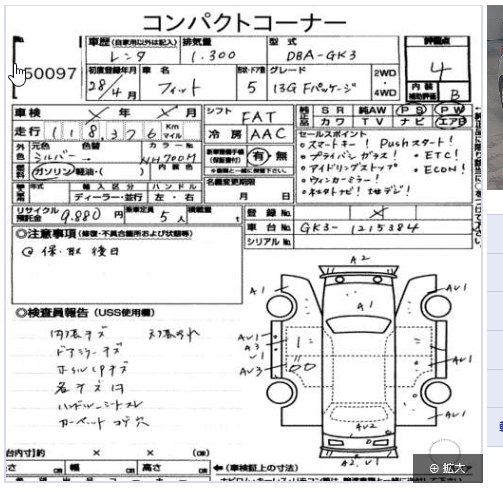 コンパクトコーナー
50097
車歴 (自家用以外は記入) 排気量 型式 評価点
レンタ 1.300 DBA-GK3 4
初度登録年月 車名 形状・ドア数 グレード 2WD 内装
28/4月 フィット 5 13G Fパッケージ 4WD 補助評価 B
車検 × 年 × 月 シフト FAT
純正 SR 純AW PS PW
カワ TV ナビ エアB
走行 118376 Km マイル 冷房 AAC
外色 元色 色替 カラーNo.
シルバー NH700M 内装色
セールスポイント
・スマートキー! Pushスタート!
・プライバシーガラス! ・ETC!
・アイドリングストップ ・ECON!
・ウィンカーミラー!
地デジ!
燃料 ガソリン・軽油・( )
新車整備手帳 (保証書付) 有・無
年式 輸入区分 ハンドル
ディーラー・並行 左・右
名義変更期限 月 日
リサイクル預託金 9.880 円 乗車定員 5 人 積載量 t
登録No. ×
車台No. GK3-1215384
シリアルNo.
◎注意事項 (修復・不具合箇所および状態等)
◎ 保、取 後日
◎検査員報告 (USS使用欄)
内張キズ
ドアミラーキズ
各キズ凹
カーペット コゲ穴
A2
A1 A1 AU1
AU1
A3
U1
AU3
AU1
AU1
AU2
A2, U1
台内寸)約 × × (cm)
さ cm 幅 cm 高さ cm
←(車検証上の寸法)
拡大